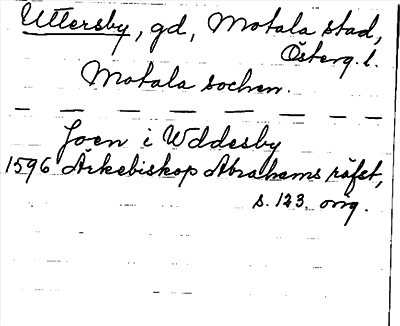 Uttersby, gd, Motala stad,
Österg. l.
Motala socken.
Joen i Wddesby
1596 Ärkebiskop Abrahams räfst,
s. 123. orig.